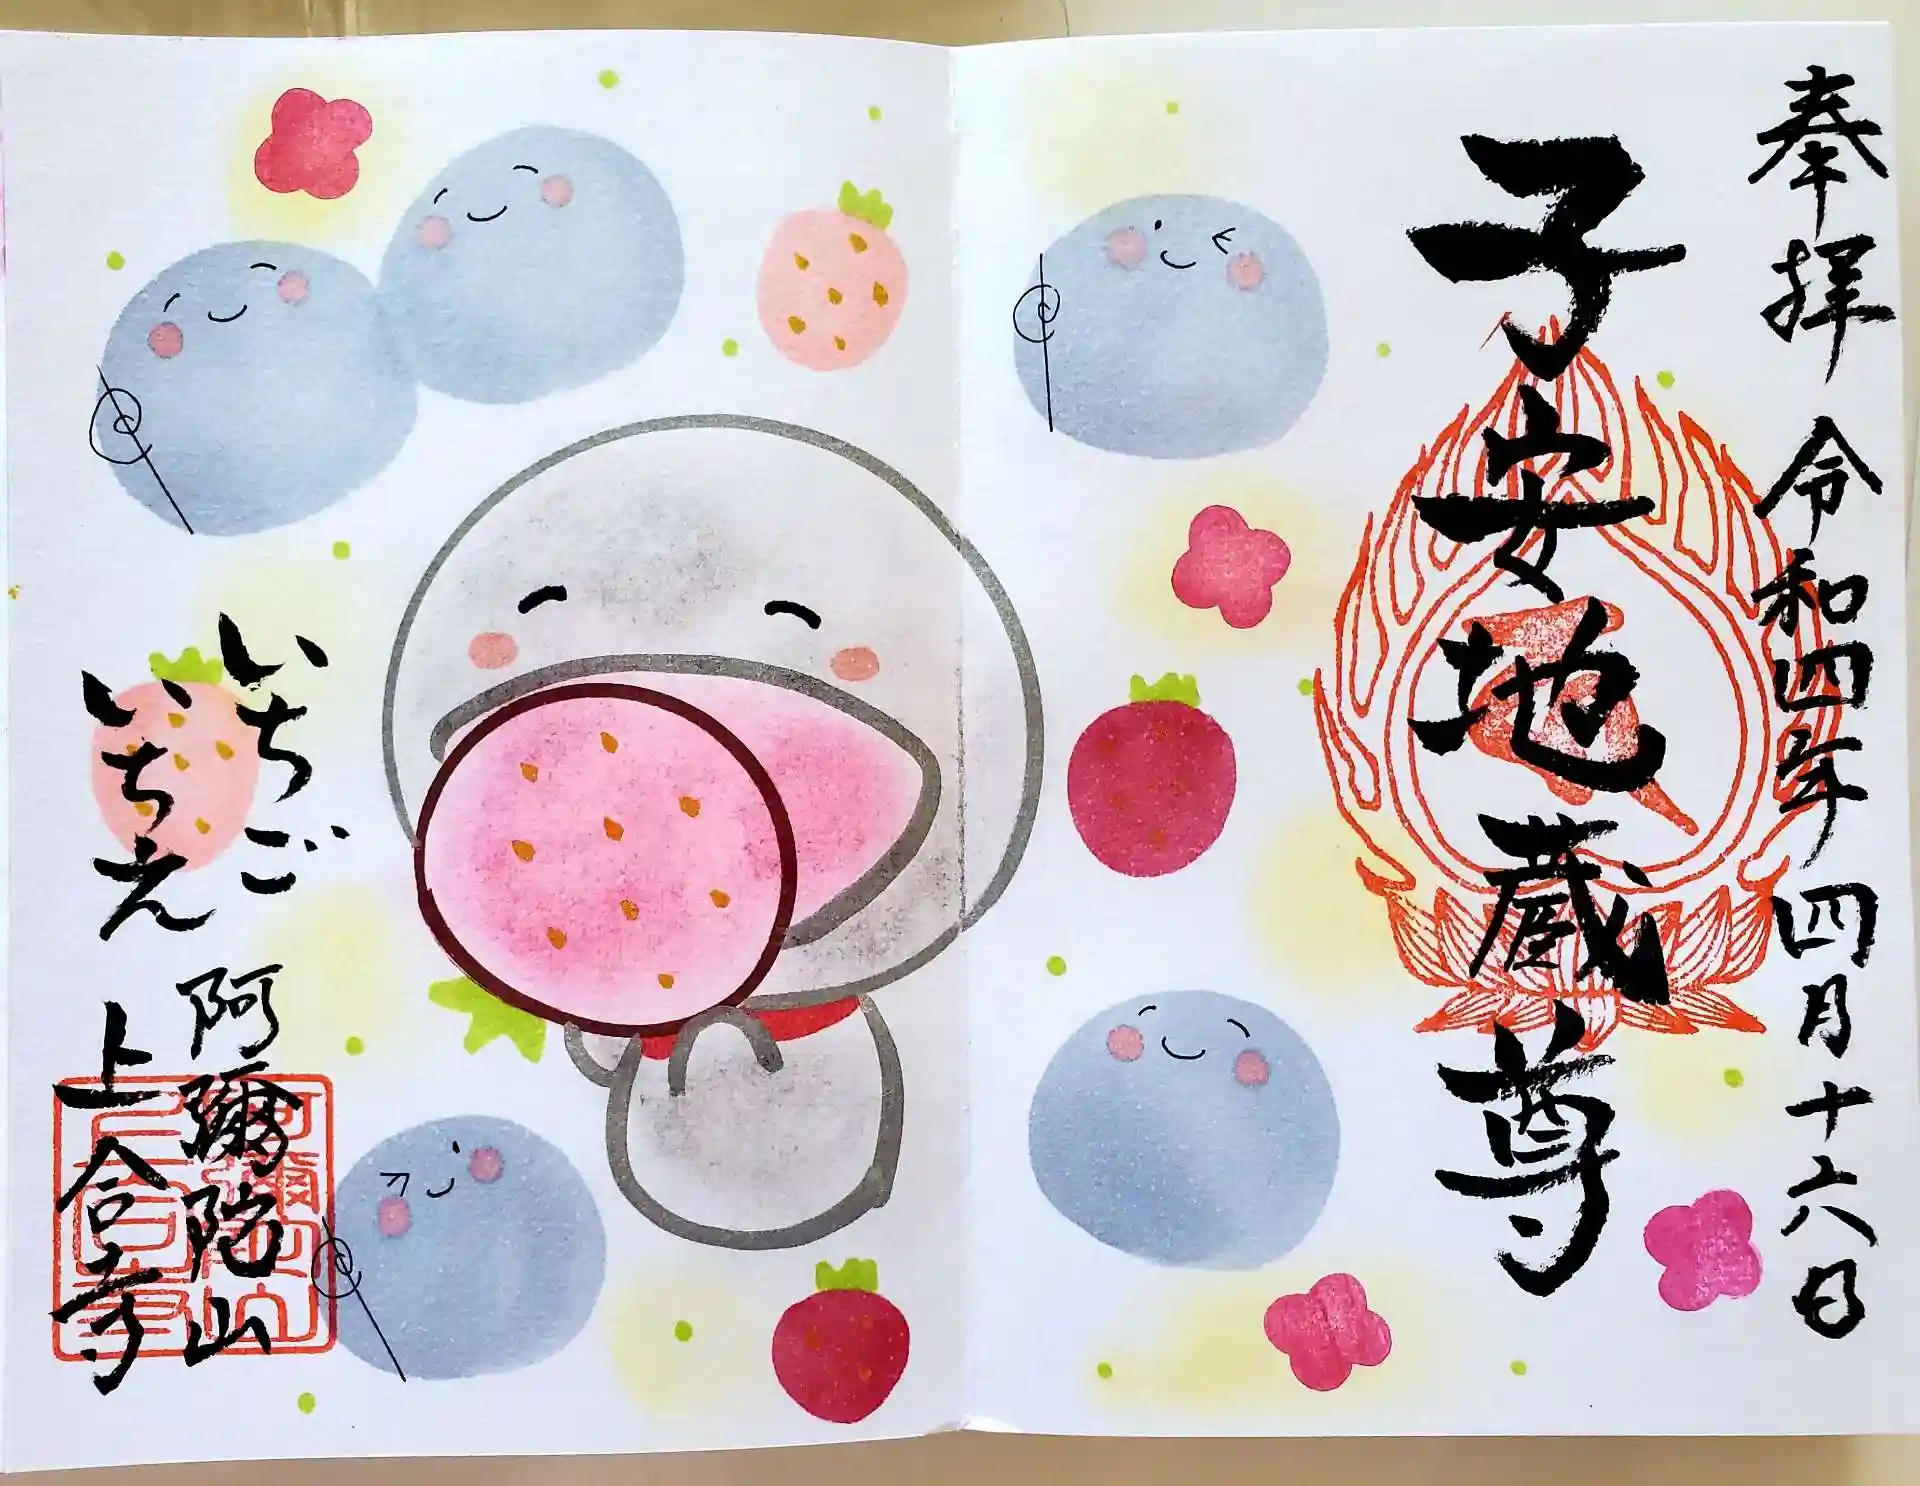 奉拝 令和四年四月十六日
子安地蔵尊
いちご
いちえ
阿彌陀山
上合寺